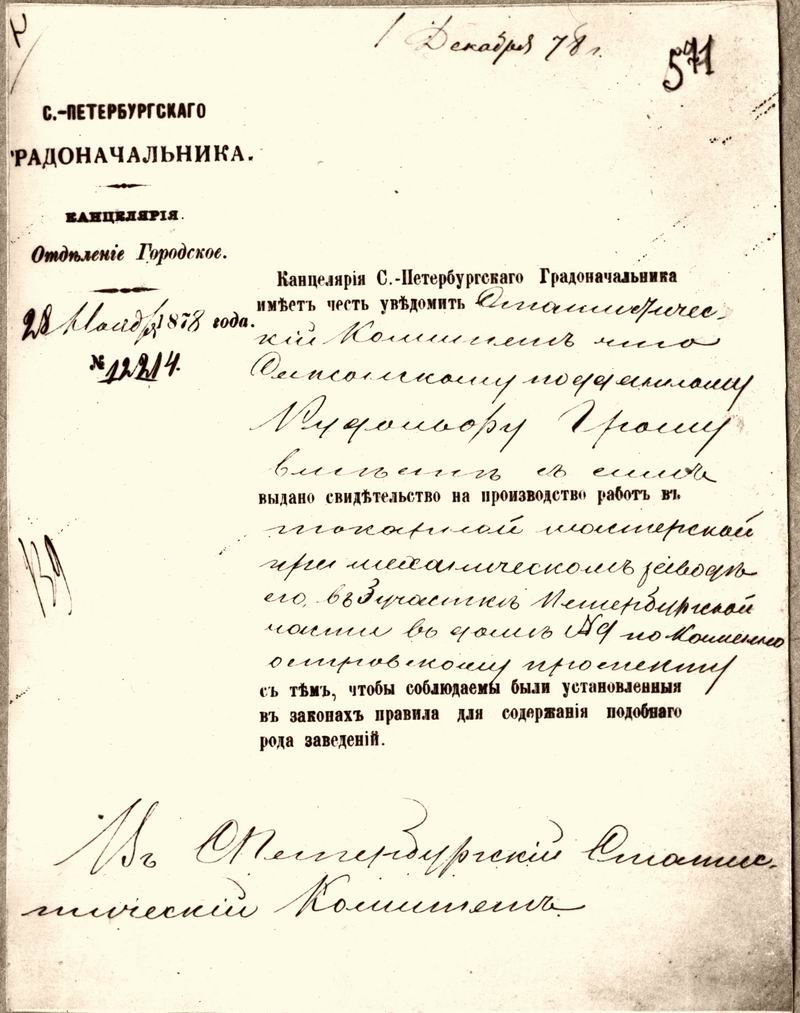 1 Декабря 78 г.
571
С.-ПЕТЕРБУРГСКАГО
РАДОНАЧАЛЬНИКА.
КАНЦЕЛЯРІЯ.
Отдѣленіе Городское.
28 Ноября 1878 года.
№ 12214.
139
Канцелярія С.-Петербургскаго Градоначальника
имѣетъ честь увѣдомить Статистичес-
кій Комитетъ что
Саксонскому подданному
Рудольфу
вмѣстѣ съ симъ
выдано свидѣтельство на производство работъ въ
токарной мастерской
при механическомъ заводѣ
его, въ 3 участкѣ Петербургской
части въ домѣ №9 по Каменно
островскому проспекту
съ тѣмъ, чтобы соблюдаемы были установленныя
въ законахъ правила для содержанія подобнаго
рода заведеній.
Въ СПетербургскій Статис-
тическій Комитетъ